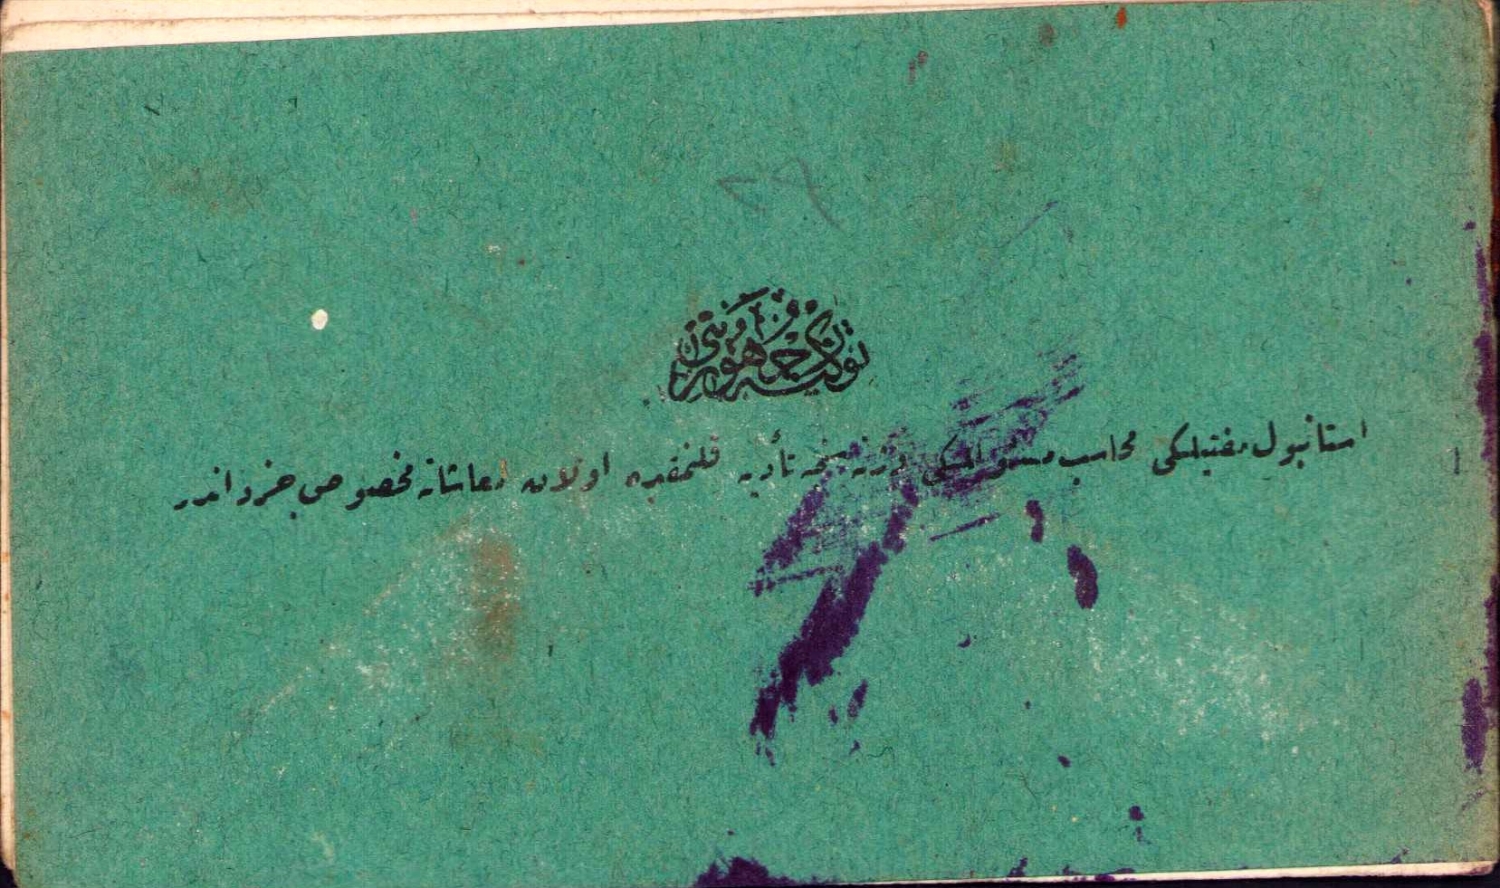 ۲۹
توركيه جمهوريتى
استانبول مفتيلكى محاسب مسئوللكى وزنه سنجه تأديه قلنمقده اولان معاشاته مخصوص جزداندر